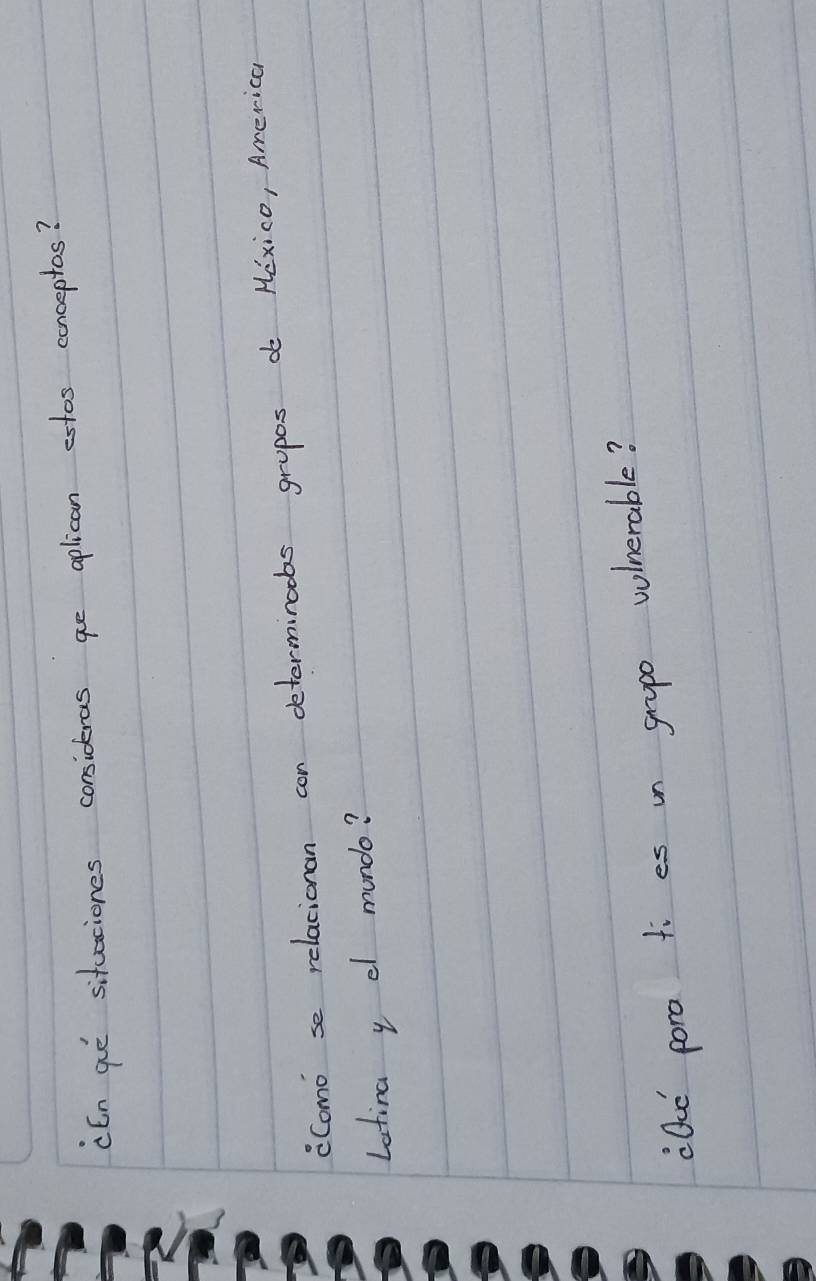 ¿En qué situaciones consideras que aplican estos conceptos?
¿Comó se relacionan con determinados grupos de México, America
Latina y el mundo?
¿Qué para ti es un grupo vulnerable?